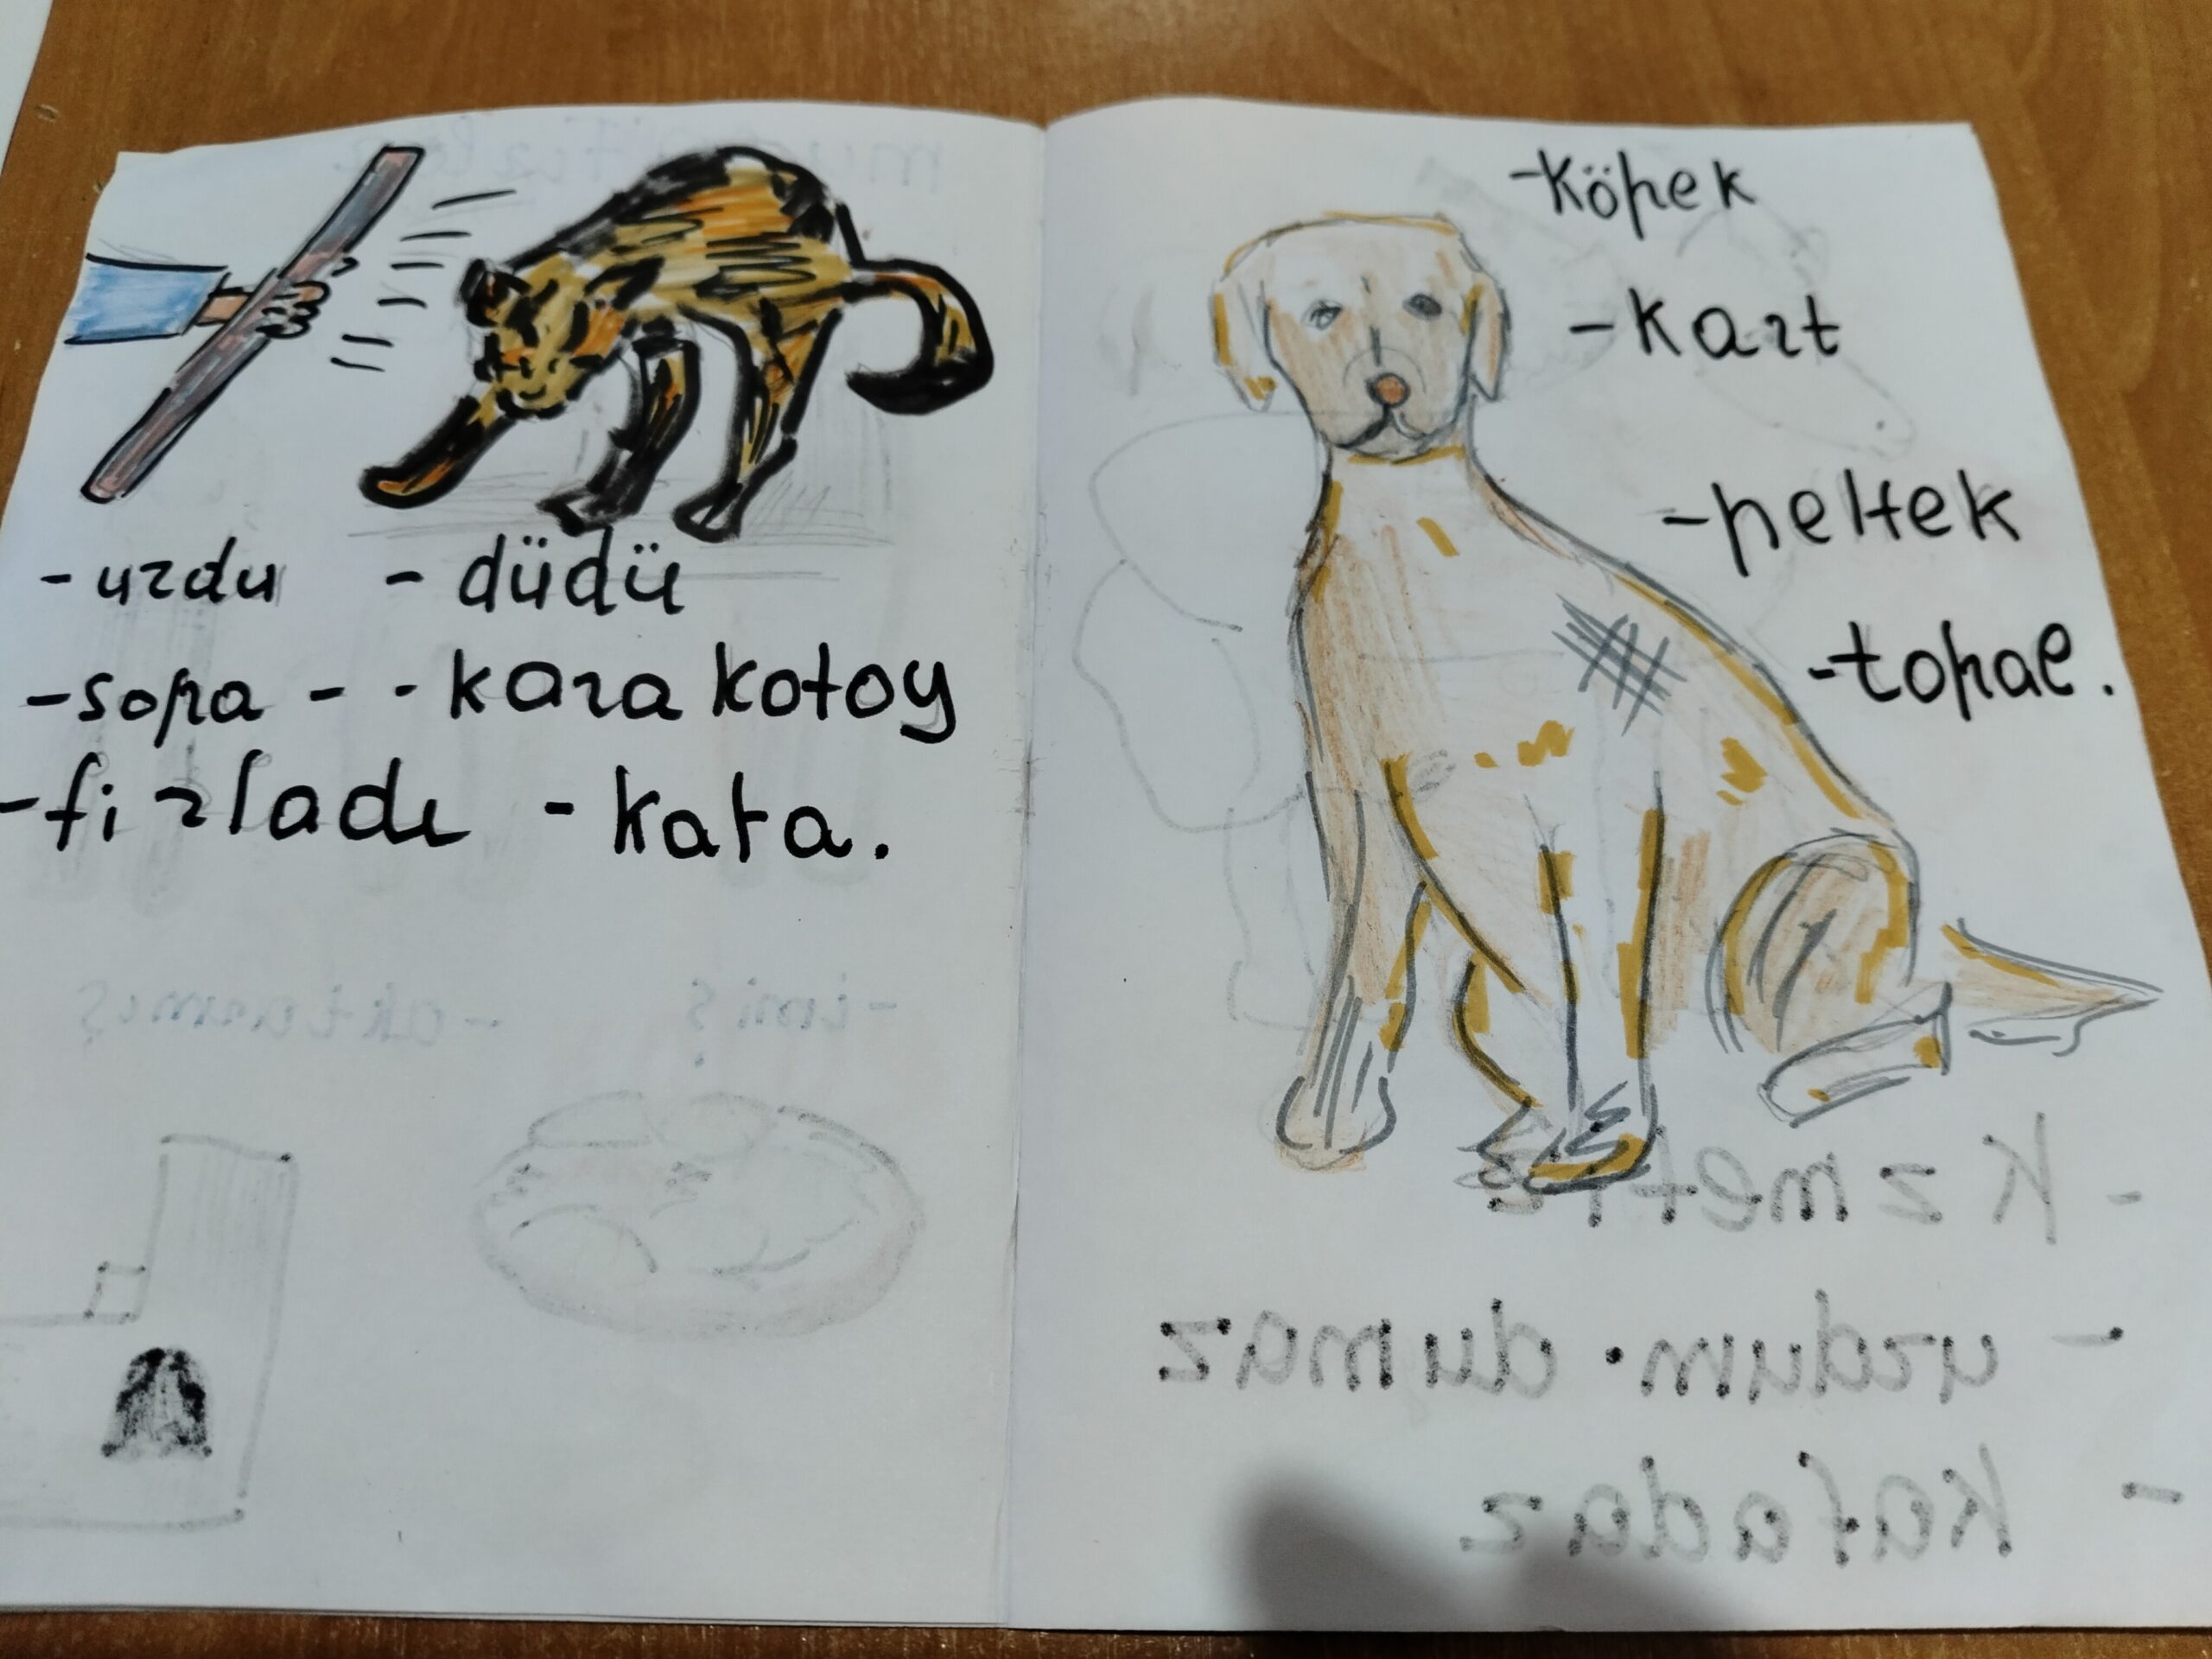 -urdu - düdü
-sopa - - kara kotoy
-firladı - kafa.
-köpek
-kart
-peltek
-topal.